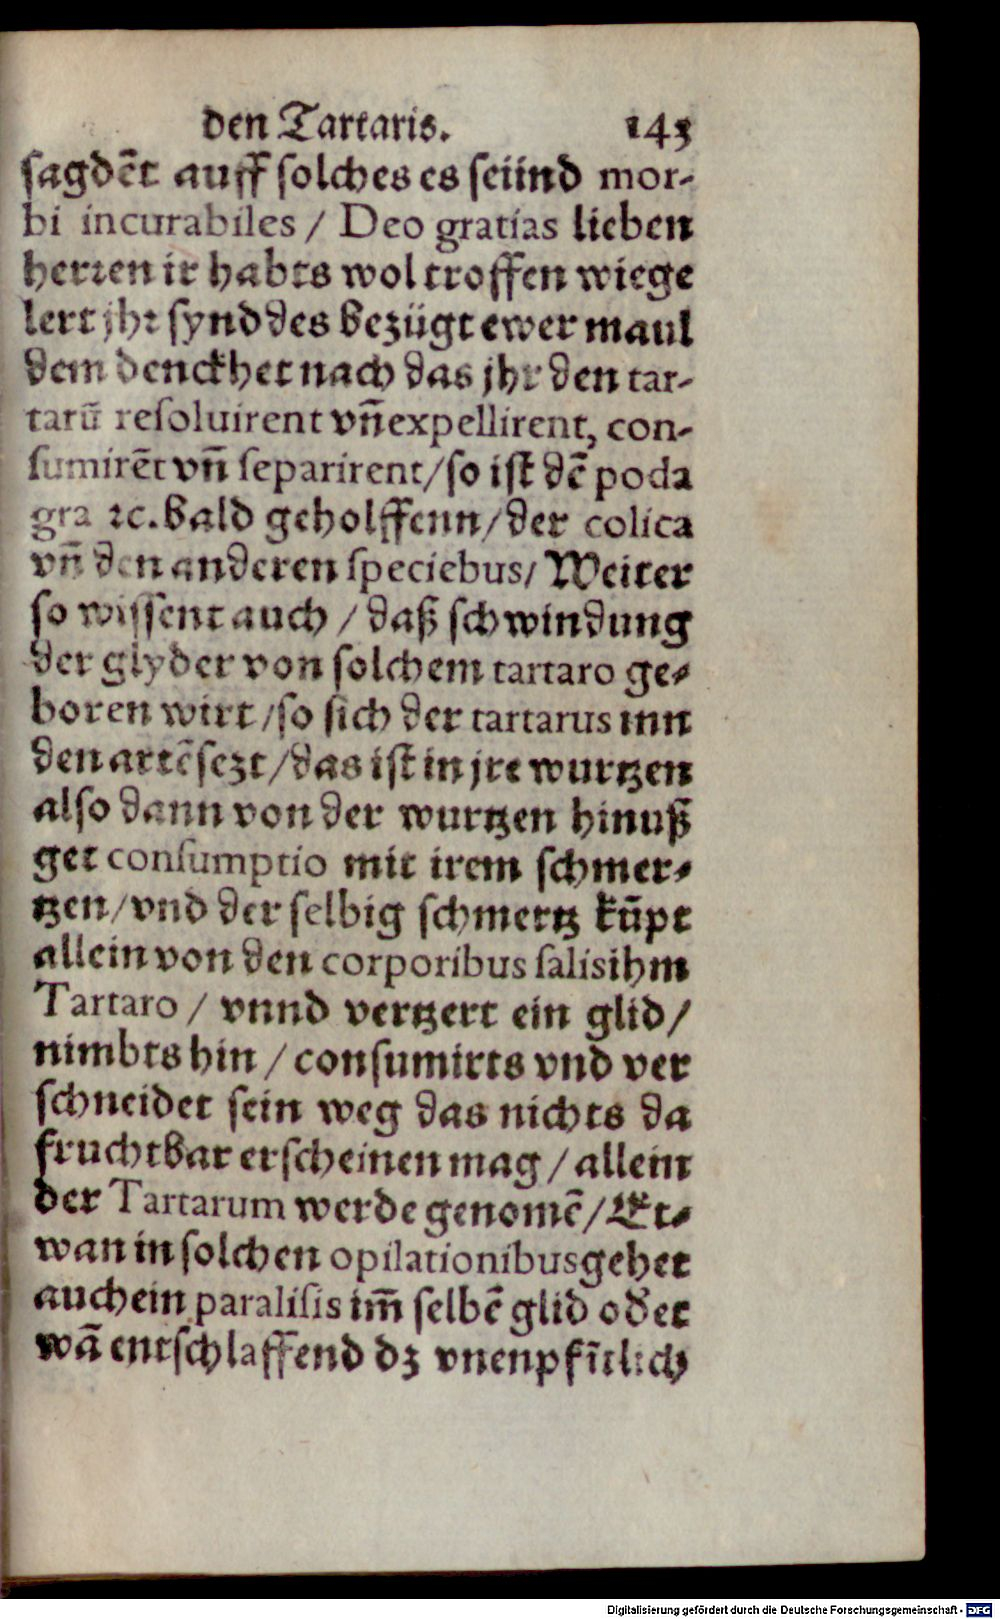 den Tartaris. 143
sagdēt auff solches es seiind mor-
bi incurabiles / Deo gratias lieben
herren ir habts wol troffen wiege
lert jhr synd des bezügt ewer maul
dem denckhet nach das jhr den tar-
tarū resoluirent vn̄ expellirent, con-
sumirēt vn̄ separirent/so ist dē poda
gra ꝛc. bald geholffenn/der colica
vn̄ den anderen speciebus/ Weiter
so wissent auch / daß schwindung
der glyder von solchem tartaro ge-
boren wirt /so sich der tartarus inn
den artē sezt/das ist in jre wurtzen
also dann von der wurtzen hinuß
get consumptio mit irem schmer-
tzen/vnd der selbig schmertz kūpt
allein von den corporibus salis ihm
Tartaro / vnnd vertzert ein glid/
nimbts hin / consumirts vnd ver
schneidet sein weg das nichts da
fruchtbar erscheinen mag / allein
der Tartarum werde genomē/Et-
wan in solchen opilationibus gehet
auch ein paralisis im̄ selbē glid oder
wā entschlaffend dz vnenpfītlich
Digitalisierung gefördert durch die Deutsche Forschungsgemeinschaft - DFG